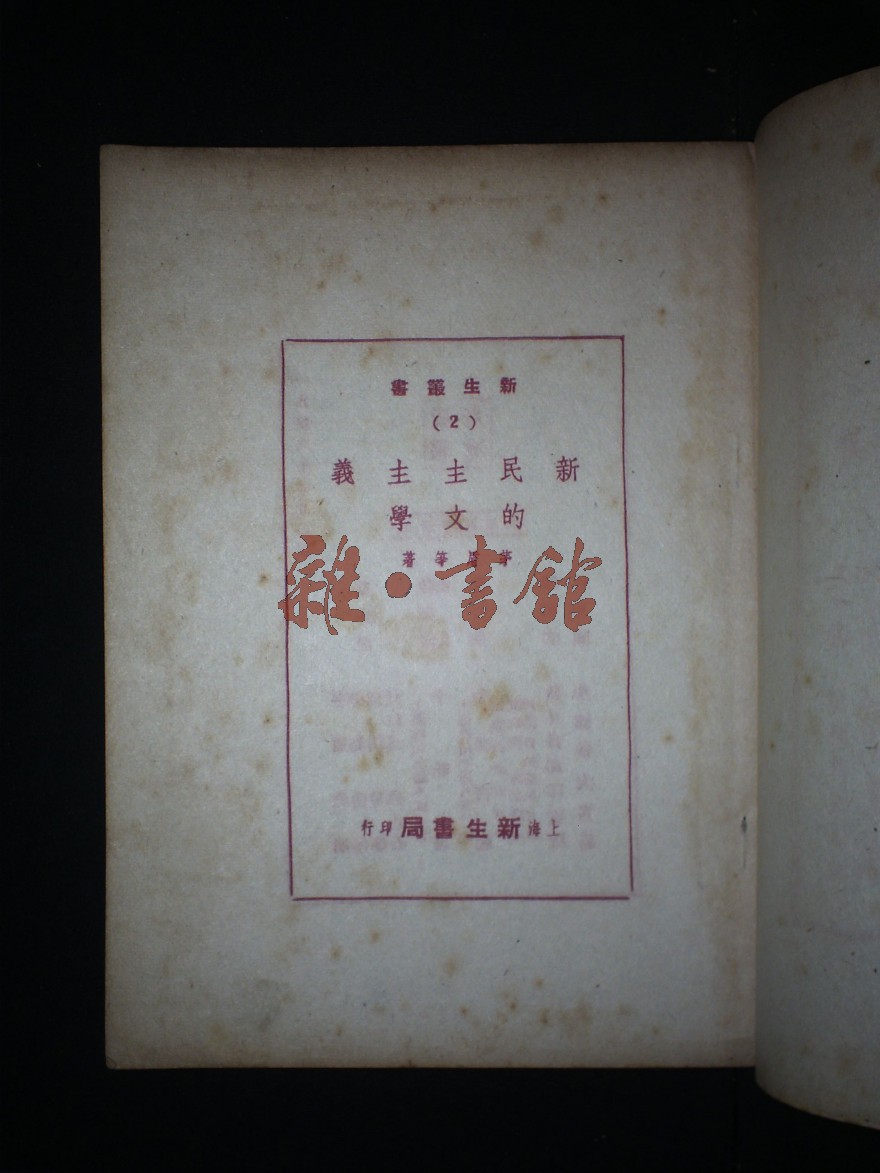 新生叢書
(2)
新民主主義
的文學
茅盾等著
雜·書館
上海新生書局印行